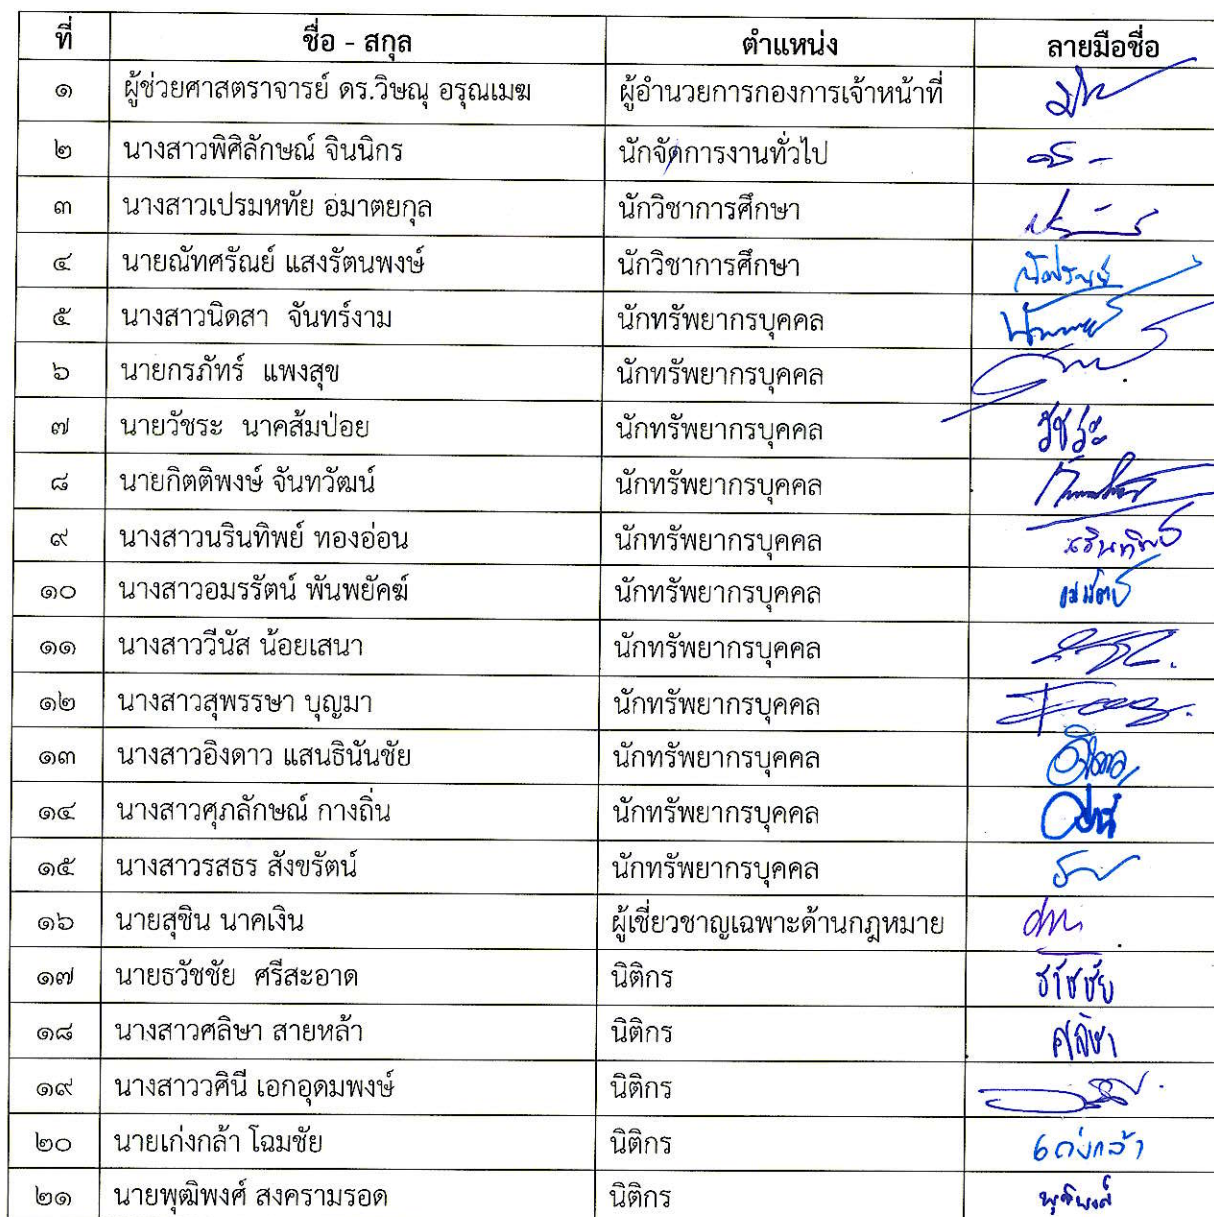 ที่ ชื่อ - สกุล ตำแหน่ง ลายมือชื่อ
๑ ผู้ช่วยศาสตราจารย์ ดร.วิษณุ อรุณเมฆ ผู้อำนวยการกองการเจ้าหน้าที่
๒ นางสาวพิศิลักษณ์ จินนิกร นักจัดการงานทั่วไป
๓ นางสาวเปรมหทัย อมาตยกุล นักวิชาการศึกษา
๔ นายณัทศรัณย์ แสงรัตนพงษ์ นักวิชาการศึกษา
๕ นางสาวนิดสา จันทร์งาม นักทรัพยากรบุคคล
๖ นายกรภัทร์ แพงสุข นักทรัพยากรบุคคล
๗ นายวัชระ นาคส้มป่อย นักทรัพยากรบุคคล วัชระ
๘ นายกิตติพงษ์ จันทวัฒน์ นักทรัพยากรบุคคล
๙ นางสาวนรินทิพย์ ทองอ่อน นักทรัพยากรบุคคล นรินทิพย์
๑๐ นางสาวอมรรัตน์ พันพยัคฆ์ นักทรัพยากรบุคคล
๑๑ นางสาววีนัส น้อยเสนา นักทรัพยากรบุคคล
๑๒ นางสาวสุพรรษา บุญมา นักทรัพยากรบุคคล
๑๓ นางสาวอิงดาว แสนธินันชัย นักทรัพยากรบุคคล
๑๔ นางสาวศุภลักษณ์ กางถิ่น นักทรัพยากรบุคคล
๑๕ นางสาวรสธร สังขรัตน์ นักทรัพยากรบุคคล
๑๖ นายสุชิน นาคเงิน ผู้เชี่ยวชาญเฉพาะด้านกฎหมาย
๑๗ นายธวัชชัย ศรีสะอาด นิติกร ธวัชชัย
๑๘ นางสาวศลิษา สายหล้า นิติกร ศลิษา
๑๙ นางสาววศินี เอกอุดมพงษ์ นิติกร
๒๐ นายเก่งกล้า โฉมชัย นิติกร เก่งกล้า
๒๑ นายพุฒิพงศ์ สงครามรอด นิติกร พุฒิพงศ์